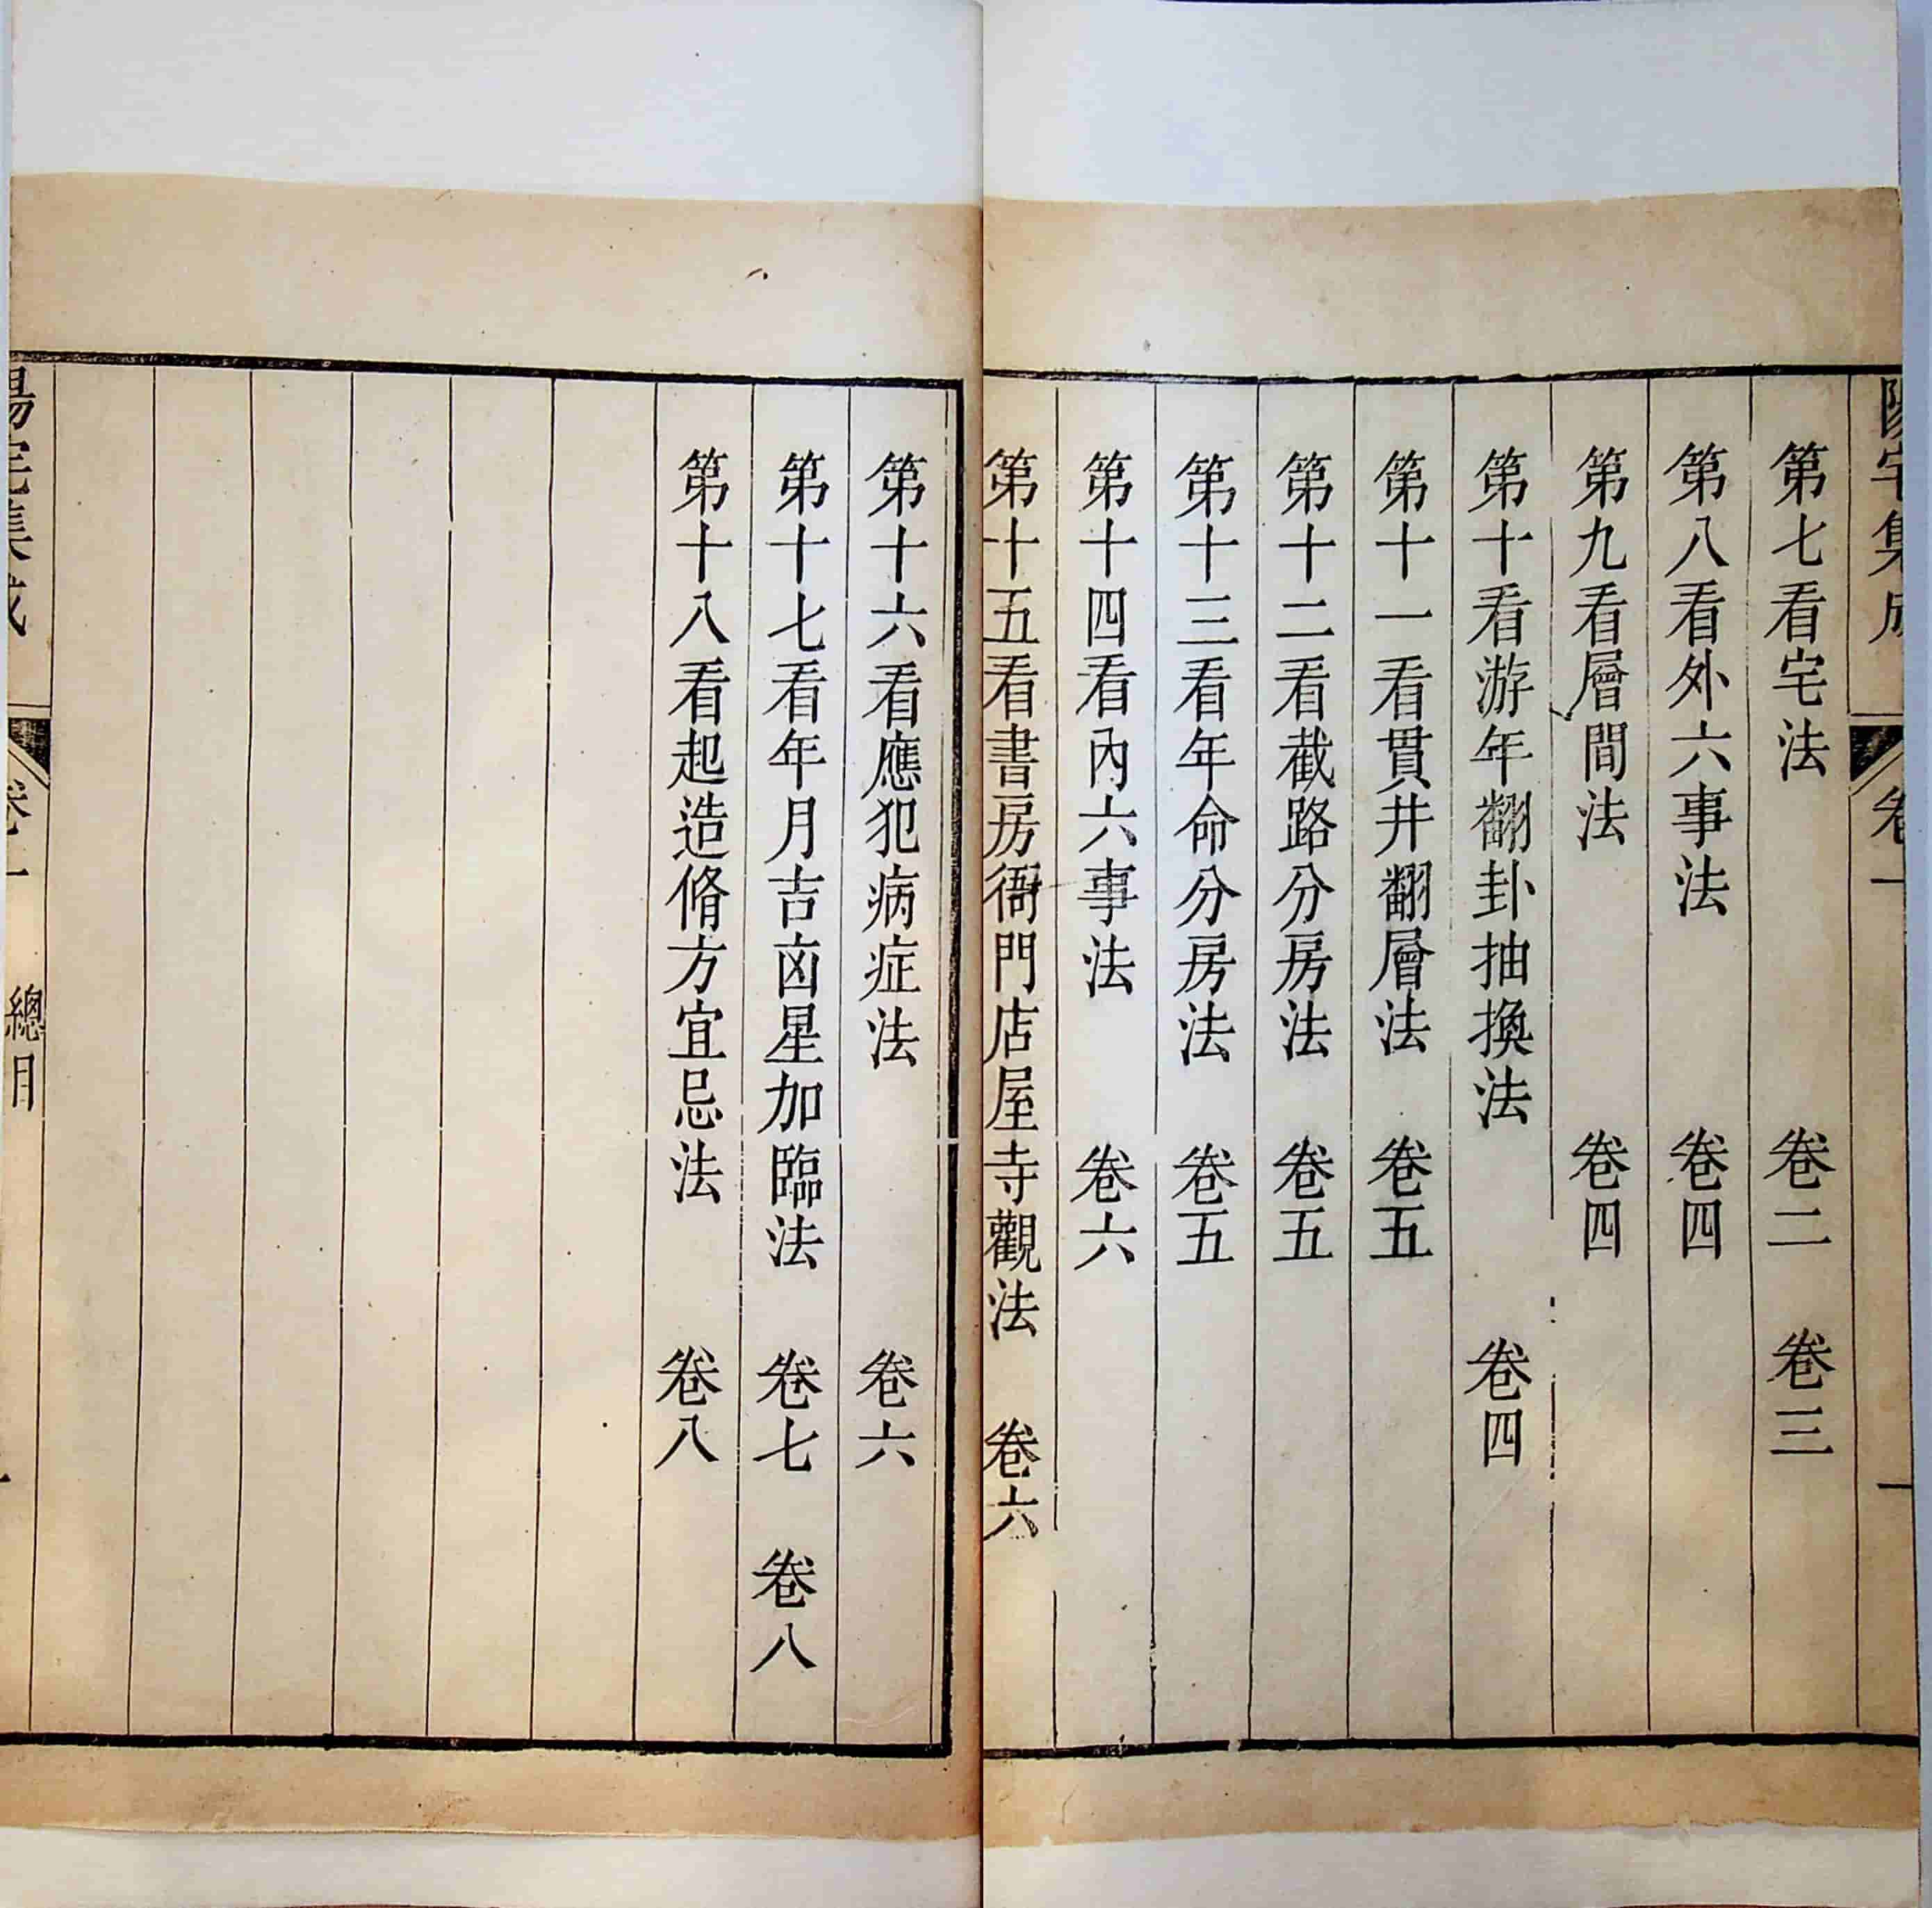 陽宅集成 卷一 一
第七看宅法 卷二 卷三
第八看外六事法 卷四
第九看層間法 卷四
第十看游年翻卦抽換法 卷四
第十一看貫井翻層法 卷五
第十二看截路分房法 卷五
第十三看年命分房法 卷五
第十四看內六事法 卷六
第十五看書房衙門店屋寺觀法 卷六
第十六看應犯病症法 卷六
第十七看年月吉凶星加臨法 卷七 卷八
第十八看起造脩方宜忌法 卷八
陽宅集成 卷一 總目